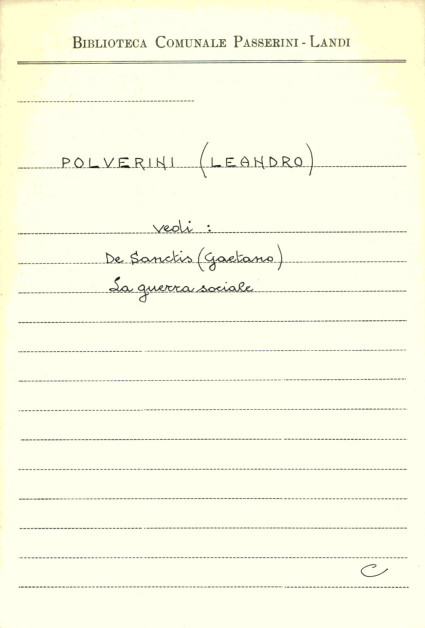 BIBLIOTECA COMUNALE PASSERINI - LANDI
POLVERINI (LEANDRO)
vedi :
De Sanctis (Gaetano)
La guerra sociale
C